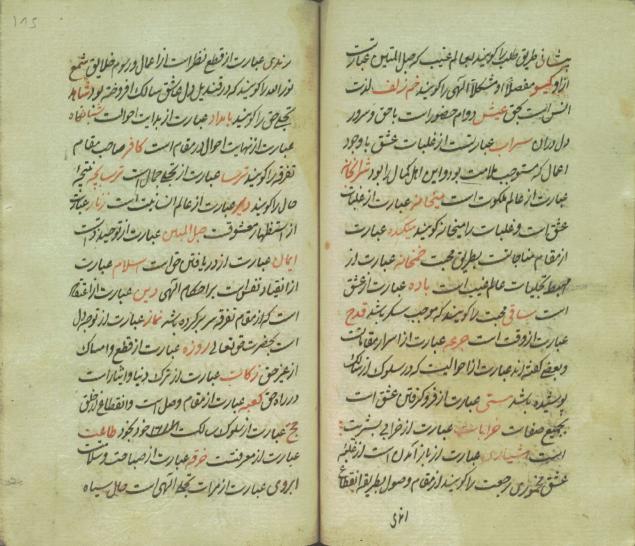 پیشانی طریق طلب را گویند بعالم غیب که حبل المتین عبارت
از او گیسو مفصلا و مشکلات الهی را گویند خم زلف لذت
انس است بحق عیش دوام حضور است با حق و سرور
دل در آن شراب عبارتست از غلبات عشق با وجود
اعمال که مستوجب ملامت بود و این اهل کمال را بود شرابخانه
عبارت از عالم ملکوت است میخانه عبارت از غلبات
عشق است و غلبات را میخانه گویند میکده عبارت
از مقام مناجاتست بطریق محبت خمخانه عبارت از
مهبط تجلیات عالم غیب است باده عبارت از عشق
است ساقی محبت را گویند که موجب سکر باشد قدح
عبارت از وقت است جرعه عبارت از اسرار مقاماتست
و بعضی گفته اند عبارت از حوالیست که در سلوک از سالک
پوشیده باشد مستی عبارت از فرو گرفتن عشق است
بجمیع صفات خرابات عبارت از خرابی بشریت
است هشیاری عبارت از باز آمدن است از غلبه
عشق مخموری رجعت را گویند از مقام وصول بطریق انقطاع
رندی عبارت از قطع نظر است از اعمال و رسوم خلایق شمع
نور الله را گویند که در قندیل دل عاشق سالک افروخته بود شاهد
تجلی حق را گویند بامداد عبارت از بدایت احوالست شبانگاه
عبارت از نهایت احوال در مقام است کافر صاحب مقام
تفرقه را گویند ترسا عبارت از تجلی جمال است ترسابچه نتیجه
حال را گویند دیر عبارت از عالم انسانیت است زنار عبارت
از استظهار معشوقست حبل المتین عبارت از توحید است
ایمان عبارت از دریافتن حق است اسلام عبارت
از انقیاد نفس است بر احکام الهی دین عبارت از اعتقاد
است که از مقام تفرقه سر بر کرده باشد نماز عبارت از توجه دل
است بحضرت حق تعالی روزه عبارت از قطع و امساک
از غیر حق زکات عبارت از ترک دنیا و ایثار است
در راه حق کعبه عبارت از مقام وصل است و انقطاع از خلق
حج عبارت از سلوک سالکست خود بخود طاعت
عبارت از معرفتست خرقه عبارت از صلاحت و سلامت
ابروی عبارت از مرات تجلی الهی است خال سیاه